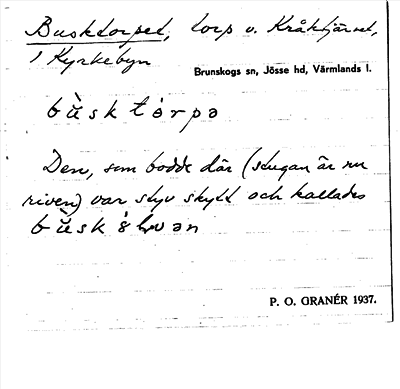 Busktorpet, torp v. Kråktjärnet,
1 Kyrkebyn
Brunskogs sn, Jösse hd, Värmlands l.
bùsk tórpə
Den, som bodde där (stugan är nu
riven) var styv skytt och kallades
bùsk
P. O. GRANÉR 1937.